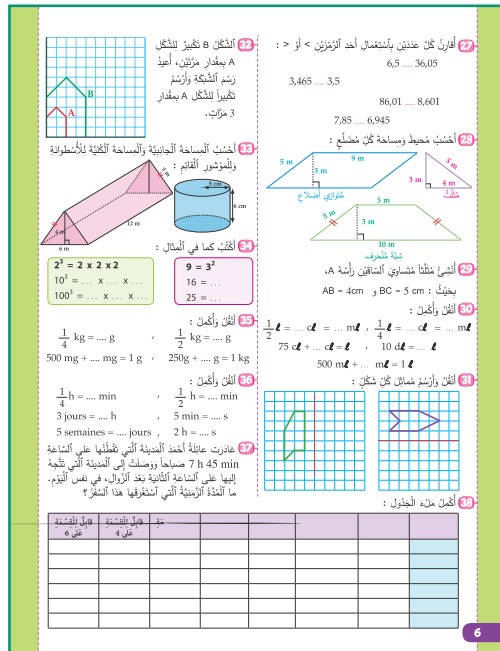 27 أُقارِنُ كُلَّ عَدَدَيْنِ بِٱسْتِعْمالِ أَحَدِ ٱلرَّمْزَيْنِ > أَوْ < :
6,5 .... 36,05
3,465 .... 3,5
86,01 .... 8,601
7,85 .... 6,945
28 أَحْسُبُ مُحيطَ وَمِساحَةَ كُلِّ مُضَلَّعٍ :
5 m
9 m
3 m
مُتَوازي أَضْلاعٍ
5 m
3 m
4 m
مُثَلَّثٌ
5 m
5 m
3 m
10 m
شِبْهُ مُنْحَرِفٍ
29 أُنْشِئُ مُثَلَّثاً مُتَساوِيَ ٱلسّاقَيْنِ رَأْسُهُ A،
بِحَيْثُ : BC = 5 cm و AB = 4cm
30 أَنْقُلُ وَأُكْمِلُ :
1/2 ℓ = ... cℓ = ... mℓ , 1/4 ℓ = ... cℓ = ... mℓ
75 cℓ + ... cℓ = ℓ , 10 dℓ = ... ℓ
500 mℓ + ... mℓ = 1 ℓ
31 أَنْقُلُ وَأَرْسُمُ مُماثِلَ كُلِّ شَكْلٍ :
32 ٱلشَّكْلُ B تَكْبيرٌ لِلشَّكْلِ
A بِمِقْدارِ مَرَّتَيْنِ، أُعيدُ
رَسْمَ ٱلشَّبَكَةِ وَأَرْسُمُ
تَكْبيراً لِلشَّكْلِ A بِمِقْدارِ
3 مَرّاتٍ.
B
A
33 أَحْسُبُ ٱلْمِساحَةَ ٱلْجانِبِيَّةَ وَٱلْمِساحَةَ ٱلْكُلِّيَّةَ لِلْأُسْطُوانَةِ
وَلِلْمَوْشورِ ٱلْقائِمِ :
5 m
12 m
4 m
6 m
3 cm
6 cm
34 أَكْتُبُ كَما في ٱلْمِثالِ :
2³ = 2 x 2 x 2
10³ = ... x ... x ...
100³ = ... x ... x ...
9 = 3²
16 = ...
25 = ...
35 أَنْقُلُ وَأُكْمِلُ :
1/4 kg = .... g , 1/2 kg = .... g
500 mg + .... mg = 1 g , 250g + .... g = 1 kg
36 أَنْقُلُ وَأُكْمِلُ :
1/4 h = .... min , 1/2 h = .... min
3 jours = .... h , 5 min = .... s
5 semaines = .... jours , 2 h = .... s
37 غادَرَتْ عائِلَةُ أَحْمَدَ ٱلْمَدينَةَ ٱلَّتي تَقْطُنُها عَلى ٱلسّاعَةِ
7 h 45 min صَباحاً وَوَصَلَتْ إِلى ٱلْمَدينَةِ ٱلَّتي تَتَّجِهُ
إِلَيْها عَلى ٱلسّاعَةِ ٱلثّانِيَةِ بَعْدَ ٱلزَّوالِ، في نَفْسِ ٱلْيَوْمِ.
ما ٱلْمُدَّةُ ٱلزَّمَنِيَّةُ ٱلَّتي ٱسْتَغْرَقَها هٰذا ٱلسَّفَرُ؟
38 أُكْمِلُ مَلْءَ ٱلْجَدْوَلِ :
قابِلٌ لِلْقِسْمَةِ عَلى 4
قابِلٌ لِلْقِسْمَةِ عَلى 6
6